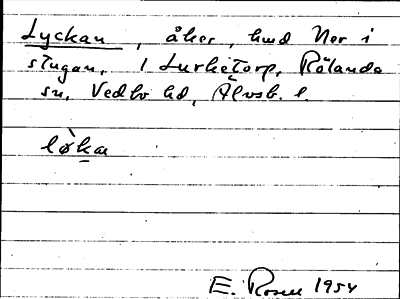 Lyckan, åker, hmd Ner i
stugan, 1 Lurketorp, Rölanda
sn, Vedbo hd, Älvsb. l.
løkan
E. Rosen 1954